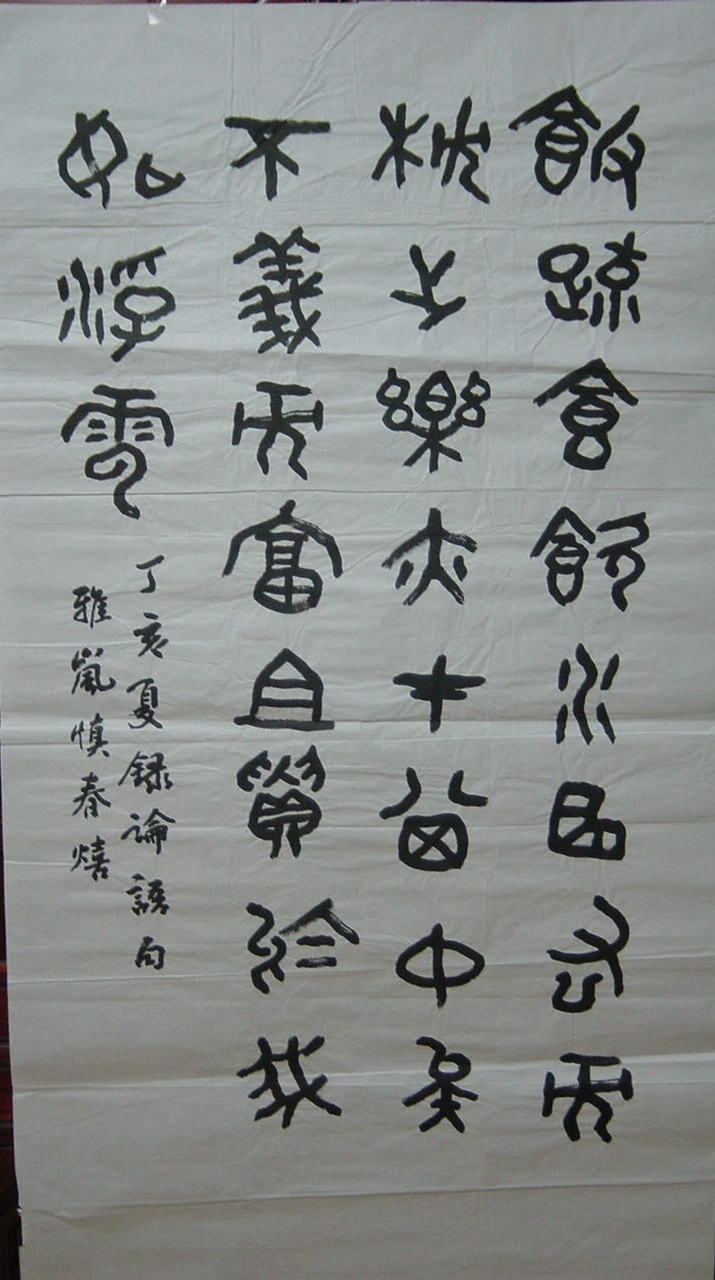 飯疏食飲水曲肱而
枕之樂亦在其中矣
不義而富且貴於我
如浮雲
丁亥夏録論語句
雅嵐慎春熺